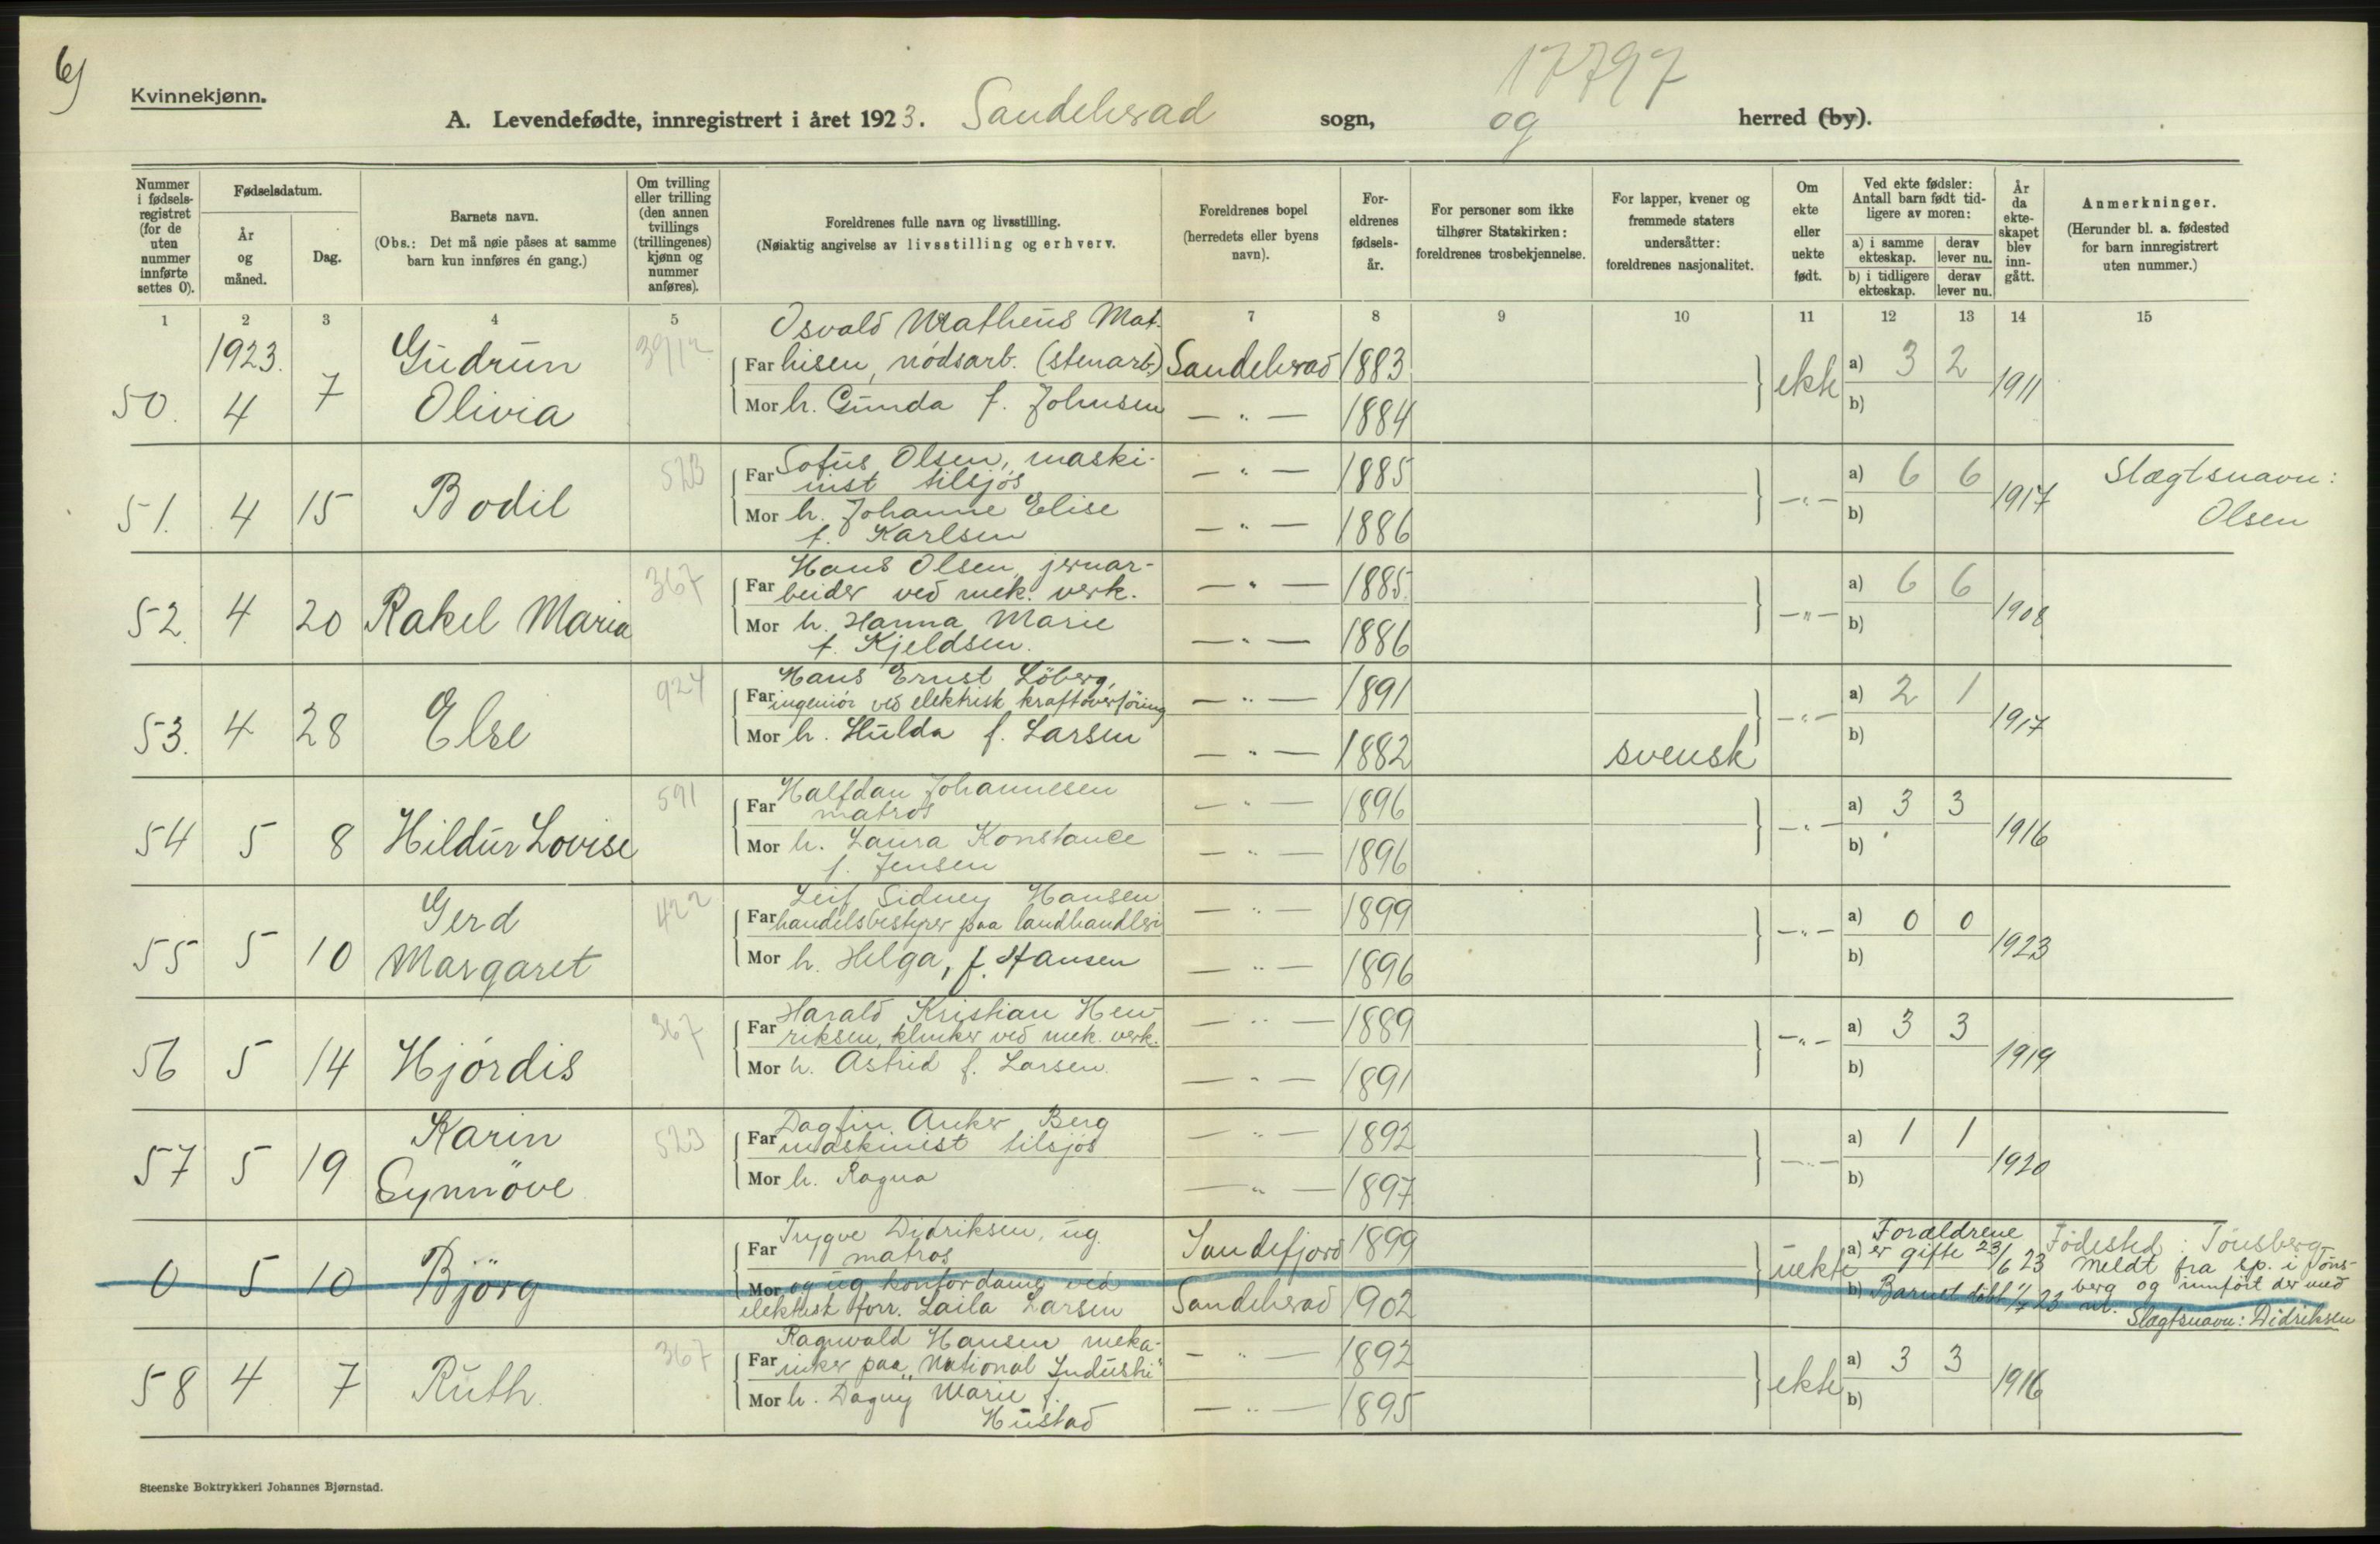 6)
Kvinnekjønn.
17797
A. Levendefødte, innregistrert i året 1923. Sandeherad sogn, og herred (by).
Nummer i fødsels-registret (for de uten nummer innførte settes 0).
Fødselsdatum.
År og måned.
Dag.
Barnets navn.
(Obs.: Det må nøie påses at samme barn kun innføres én gang.)
Om tvilling eller trilling (den annen tvillings (trillingenes) kjønn og nummer anføres).
Foreldrenes fulle navn og livsstilling.
(Nøiaktig angivelse av livsstilling og erhverv.
Foreldrenes bopel (herredets eller byens navn).
For-eldrenes fødsels-år.
For personer som ikke tilhører Statskirken: foreldrenes trosbekjennelse.
For lapper, kvener og fremmede staters undersåtter: foreldrenes nasjonalitet.
Om ekte eller uekte født.
Ved ekte fødsler: Antall barn født tid-ligere av moren:
a) i samme ekteskap.
derav lever nu.
b) i tidligere ekteskap.
derav lever nu.
År da ekte-skapet blev inn-gått.
Anmerkninger.
(Herunder bl. a. fødested for barn innregistrert uten nummer.)
1 2 3 4 5 7 8 9 10 11 12 13 14 15
50. 1923. 4 7 Gudrun Olivia
Osvald Matheus Mat-
Far hisen, nødsarb. (stenarb.) Sandeherad 1883 ekte a) 3 2 1911
Mor h. Gunda f. Johnsen — " — 1884 b)
51. 4 15 Bodil 523
Far Sofus Olsen, maski-
nist tilsjøs — " — 1885 — " — a) 6 6 1917 Slægtsnavn:
Mor h. Johanne Elise — " — 1886 b) Olsen
f. Karlsen
52. 4 20 Rakel Maria 367
Hans Olsen, jernar-
Far beider ved mek. verk. — " — 1885 — " — a) 6 6 1908
Mor h. Hanna Marie — " — 1886 b)
f. Kjeldsen.
53. 4 28 Else 924
Hans Ernst Löberg,
Far ingeniör ved elektrisk kraftoverföring — " — 1891 — " — a) 2 1 1917
Mor h. Hulda f. Larsen — " — 1882 svensk b)
54 5 8 Hildur Lovise 591
Far Halfdan Johannesen
matros — " — 1896 — " — a) 3 3 1916
Mor h. Laura Konstance — " — 1896 b)
f. Jensen
55 5 10 Gerd Margaret 422
Leif Sidney Hansen
Far handelsbestyrer paa landhandleri — " — 1899 — " — a) 0 0 1923
Mor h. Helga, f. Hansen — " — 1896 b)
56 5 14 Hjördis 367
Harald Kristian Hen-
Far riksen, klinker ved mek. verk. — " — 1889 — " — a) 3 3 1919
Mor h. Astrid f. Larsen. — " — 1891 b)
57 5 19 Karin Synnöve 523
Dagfin Anker Berg
Far maskinist tilsjøs — " — 1892 — " — a) 1 1 1920
Mor h. Ragna — " — 1897 b)
0 5 10 Björg
Far Trygve Didriksen, ug.
matros Sandefjord 1899 uekte a) Forældrene er gifte 23/6 23 Födested: Tönsberg
Mor og ug. kontordame ved
elektrisk forr. Laila Larsen Sandeherad 1902 b) Barnet döbt 1/7 23 meldt fra sp. i Töns-
berg og innfört der med
nr.
Slægtsnavn: Didriksen
58 4 7 Ruth. 367
Ragnvald Hansen meka-
Far niker paa "National Industri" — " — 1892 ekte a) 3 3 1916
Mor h. Dagny Marie f. — " — 1895 b)
Hustad
Steenske Boktrykkeri Johannes Bjørnstad.